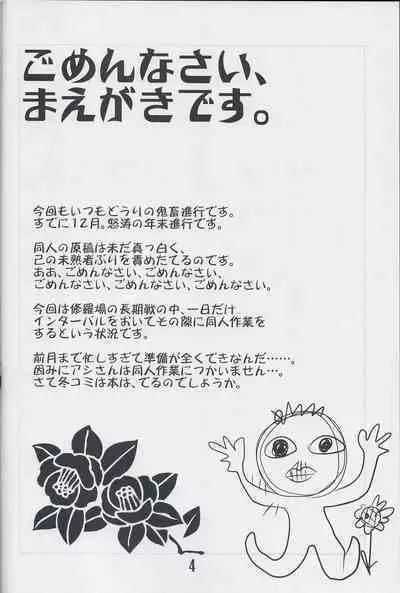 ごめんなさい、
まえがきです。
今回もいつもどうりの鬼畜進行です。
すでに12月。怒涛の年末進行です。
同人の原稿は未だ真っ白く、
己の未熟者ぶりを責めたてるのです。
ああ、ごめんなさい、ごめんなさい、
ごめんなさい、ごめんなさい、ごめんなさい。
今回は修羅場の長期戦の中、一日だけ
インターバルをおいてその隙に同人作業を
するという状況です。
前月まで忙しすぎて準備が全くできなんだ……。
因みにアシさんは同人作業につかいません…。
さて冬コミは本は、でるのでしょうか。
4